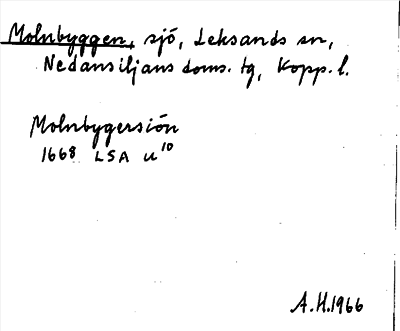 Molnbyggen, sjö, Leksands sn,
Nedansiljans doms. tg, Kopp. l.
Molnbygersiön
1668 LSA U¹⁰
A.H.1966